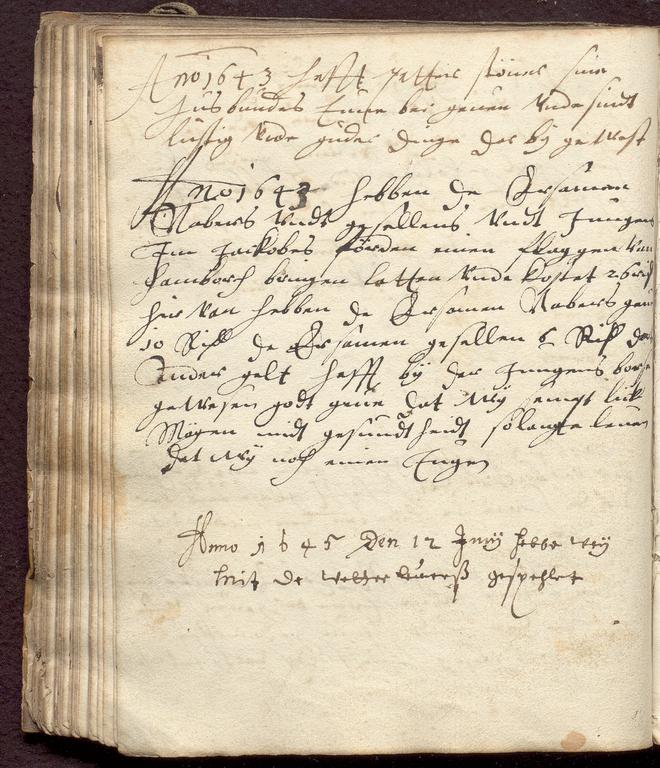 Ano 1643 hefft Petter sin
Husbundes bei genen unde sindt
lustig unde guder dinge der by gewest
Ano 1643 hebben de Ersamen
Nabers undt gesellens undt Jungens
Im Jackobes einen flaggen van
Hamborch bringen latten unde kostet 26
hir van hebben de Ersamen Nabers
10 de Ersamen gesellen 6
ander gelt hefft by der Jungens
gewesen godt geue dat wy
Mögen midt gesundtheidt solange leuen
dat wy noch einen
Anno 1645 Den 12 Junij hebbe wy
mit de gespehlet